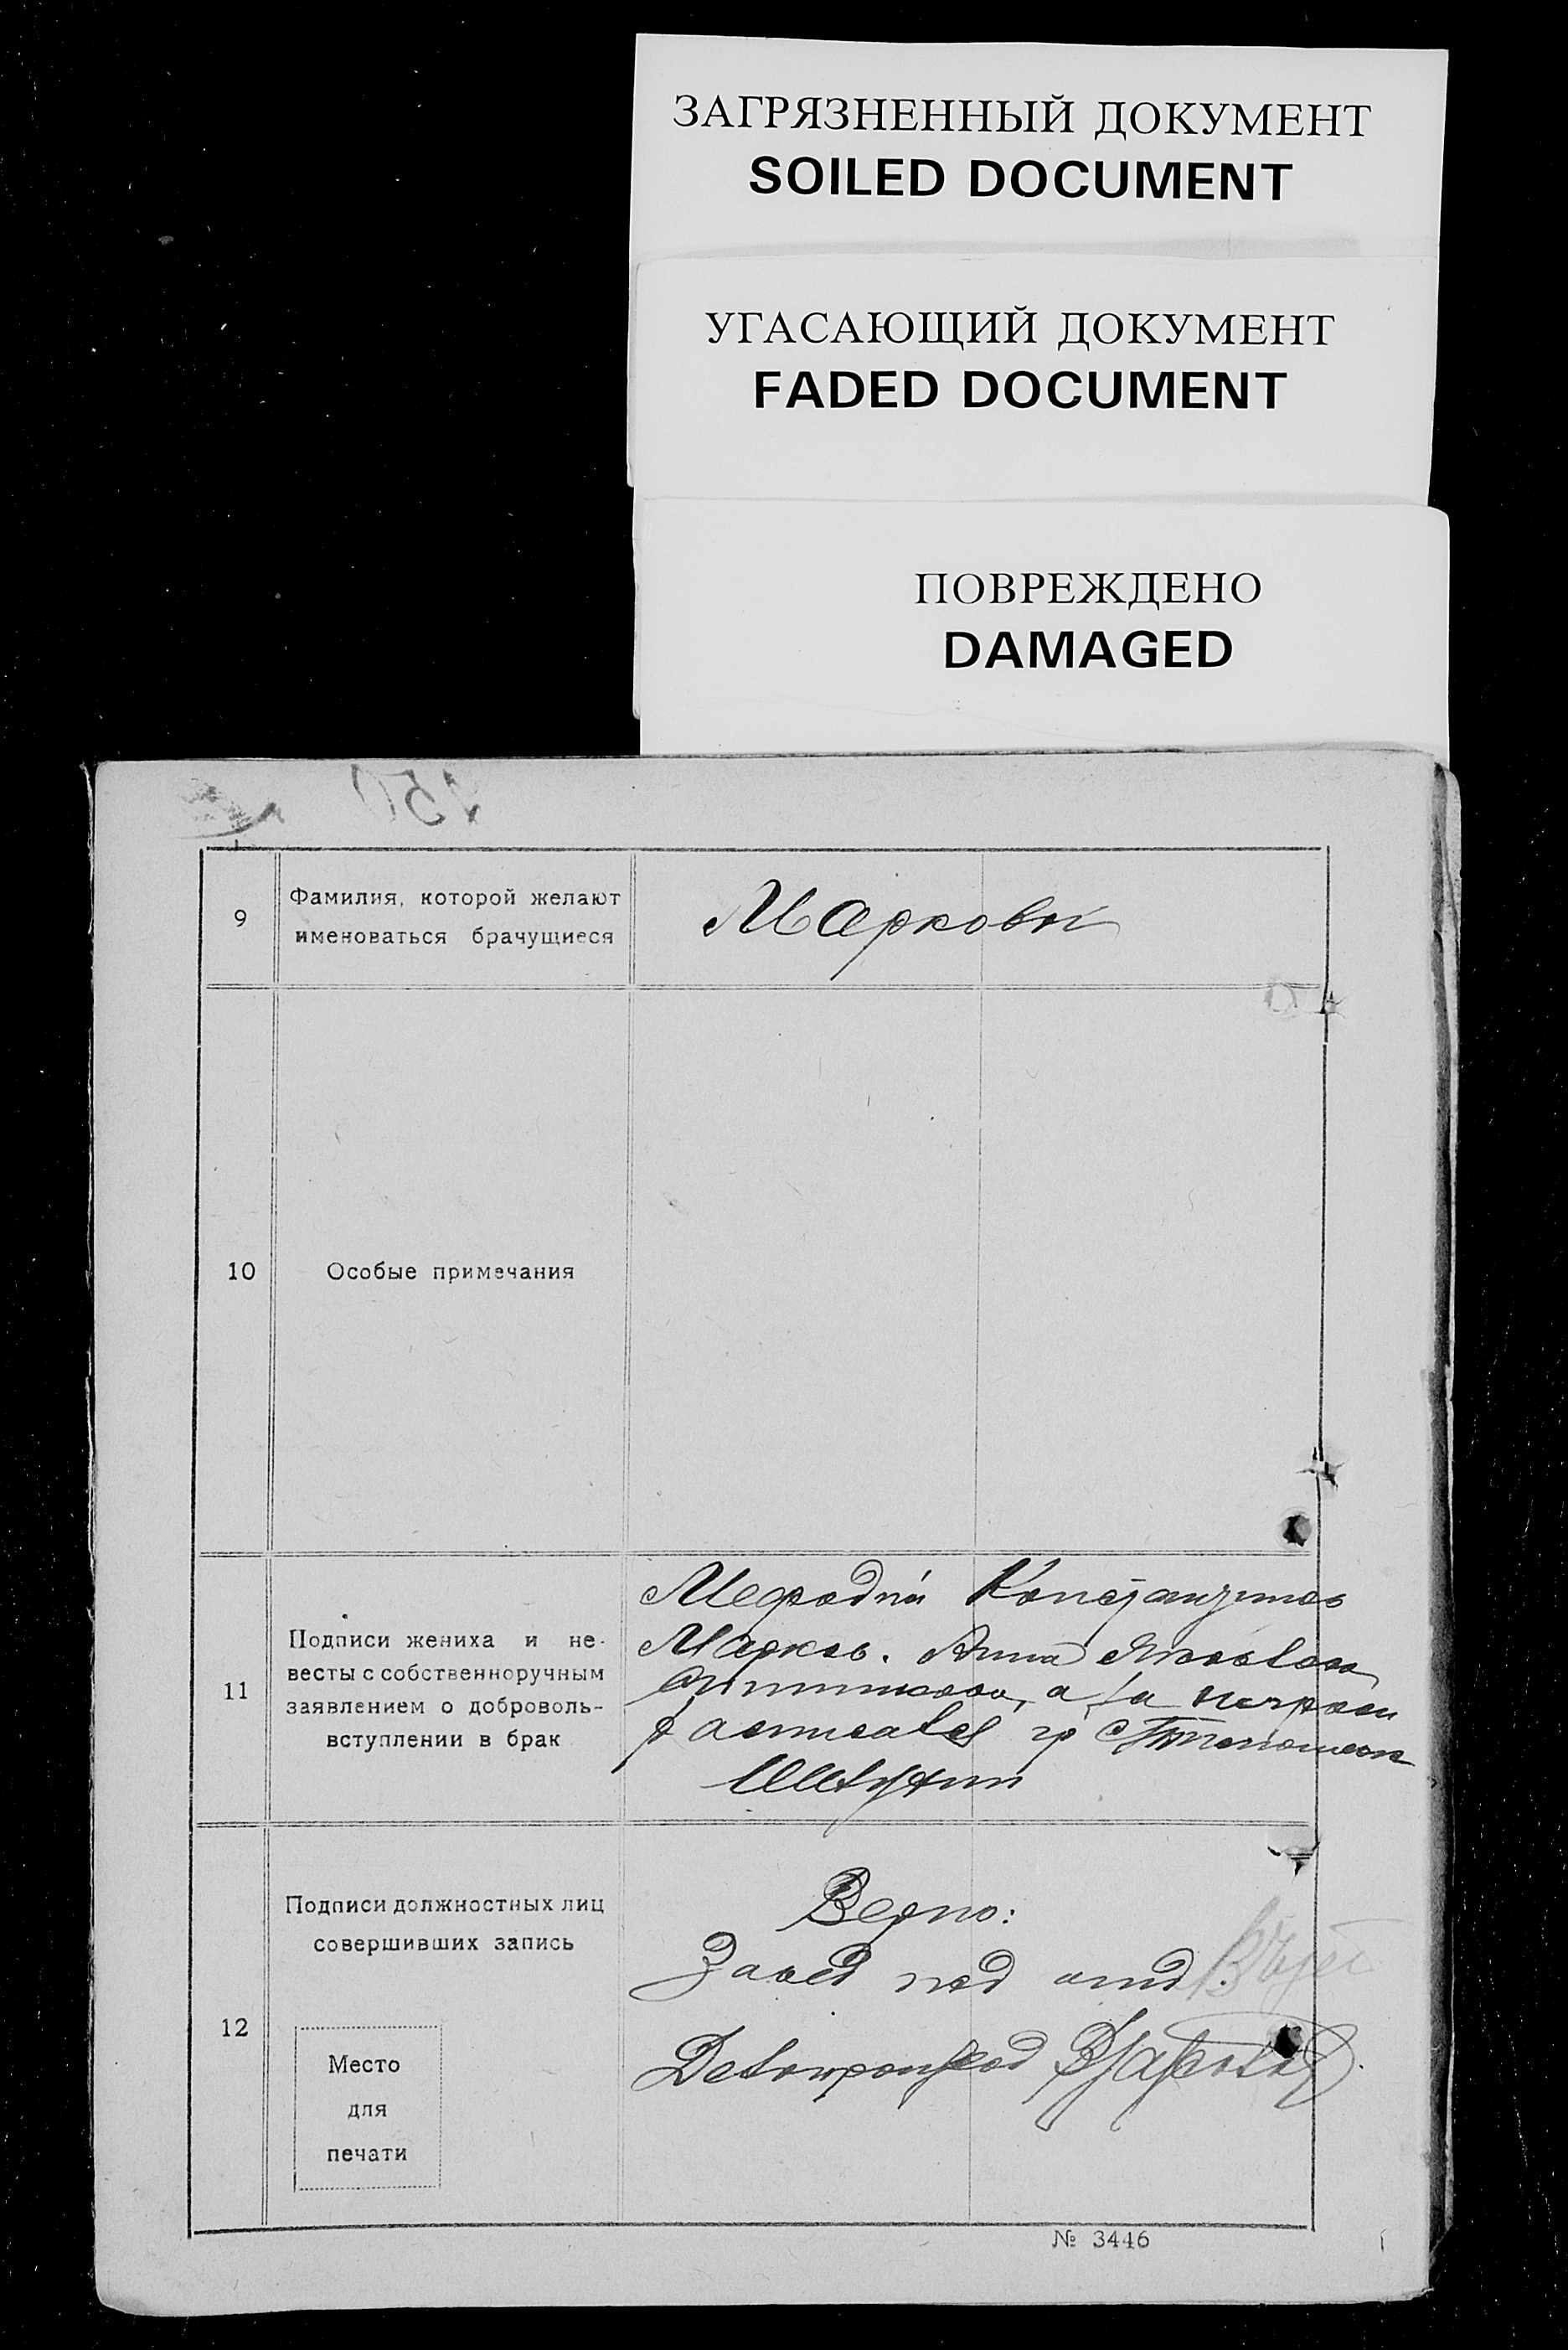 ЗАГРЯЗНЕННЫЙ ДОКУМЕНТ
SOILED DOCUMENT
УГАСАЮЩИЙ ДОКУМЕНТ
FADED DOCUMENT
ПОВРЕЖДЕНО
DAMAGED
9
Фамилия, которой желают
именоваться брачущиеся
Марковы
10
Особые примечания
11
Подписи жениха и не-
весты с собственноручным
заявлением о доброволь-
вступлении в брак
Мефодий Константинов
Марков. Анна
а за неграм
расписался гр
12
Подписи должностных лиц
совершивших запись
Верно:
Завед под отд
Делопроизвод
Место
для
печати
№ 3446